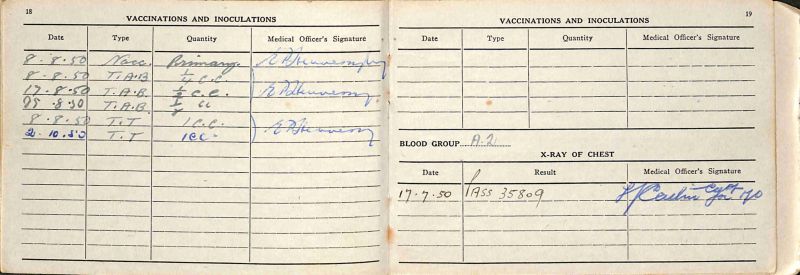 18
VACCINATIONS AND INOCULATIONS
Date Type Quantity Medical Officer's Signature
8.8.50 Vacc. Primary.
8.8.50 T.A.B ¼ c.c.
17.8.50 T.A.B. ½ c.c.
25.8.50 T.A.B. ½ cc
8.8.50 T.T 1 c.c.
2.10.50 T.T 1cc.
19
VACCINATIONS AND INOCULATIONS
Date Type Quantity Medical Officer's Signature
BLOOD GROUP A.2
X-RAY OF CHEST
Date Result Medical Officer's Signature
17.7.50 PASS 35809 Capt
for MO